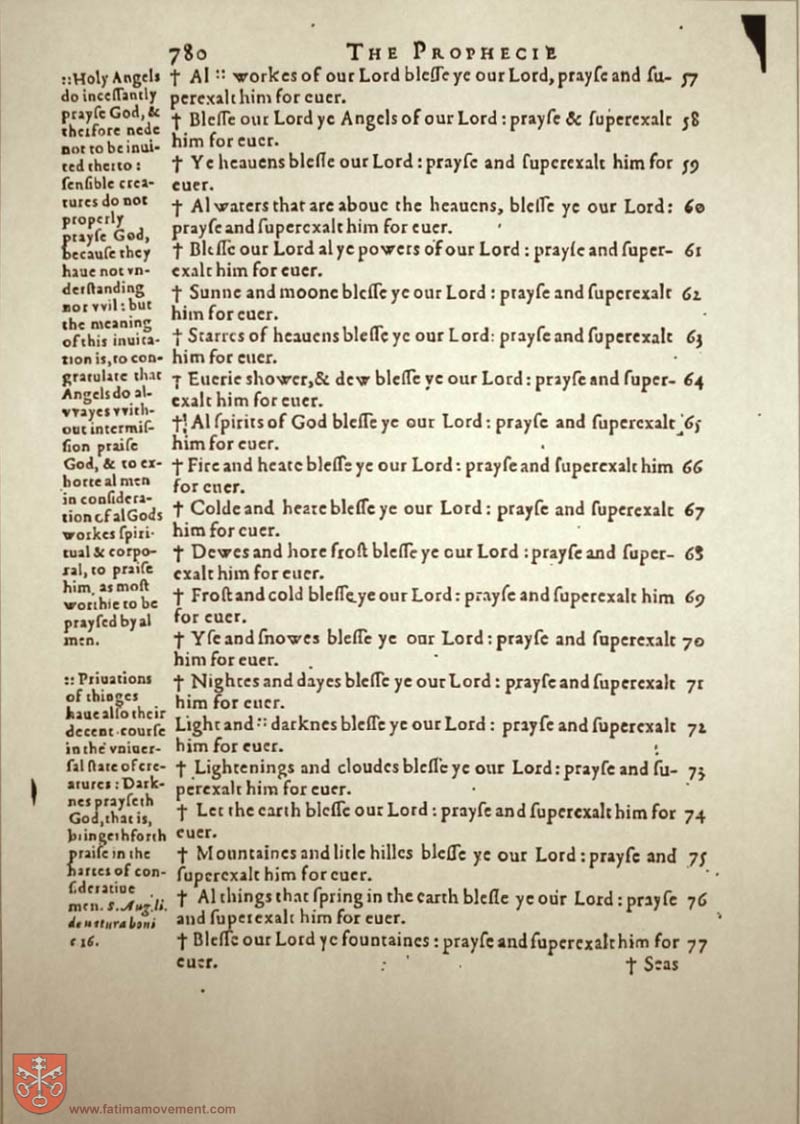 780 THE PROPHECIE
† Al :: workes of our Lord bleſſe ye our Lord, prayſe and ſu- 57
perexalt him for euer.
† Bleſſe our Lord ye Angels of our Lord : prayſe & ſuperexalt 58
him for euer.
† Ye heauens bleſſe our Lord : prayſe and ſuperexalt him for 59
euer.
† Al waters that are aboue the heauens, bleſſe ye our Lord: 60
prayſe and ſuperexalt him for euer.
† Bleſſe our Lord al ye powers of our Lord : prayſe and ſuper- 61
exalt him for euer.
† Sunne and moone bleſſe ye our Lord : prayſe and ſuperexalt 62
him for euer.
† Starres of heauens bleſſe ye our Lord: prayſe and ſuperexalt 63
him for euer.
† Euerie shower,& dew bleſſe ye our Lord : prayſe and ſuper- 64
exalt him for euer.
† Al ſpirits of God bleſſe ye our Lord : prayſe and ſuperexalt 65
him for euer.
† Fire and heate bleſſe ye our Lord : prayſe and ſuperexalt him 66
for euer.
† Colde and heate bleſſe ye our Lord : prayſe and ſuperexalt 67
him for euer.
† Dewes and hore froſt bleſſe ye our Lord : prayſe and ſuper- 68
exalt him for euer.
† Froſt and cold bleſſe ye our Lord : prayſe and ſuperexalt him 69
for euer.
† Yſe and ſnowes bleſſe ye our Lord : prayſe and ſuperexalt 70
him for euer.
† Nightes and dayes bleſſe ye our Lord : prayſe and ſuperexalt 71
him for euer.
Light and :: darknes bleſſe ye our Lord : prayſe and ſuperexalt 72
him for euer.
† Lightenings and cloudes bleſſe ye our Lord : prayſe and ſu- 73
perexalt him for euer.
† Let the earth bleſſe our Lord : prayſe and ſuperexalt him for 74
euer.
† Mountaines and litle hilles bleſſe ye our Lord : prayſe and 75
ſuperexalt him for euer.
† Al things that ſpring in the earth bleſſe ye our Lord : prayſe 76
and ſuperexalt him for euer.
† Bleſſe our Lord ye fountaines : prayſe and ſuperexalt him for 77
euer.
† Seas
:: Holy Angels
do inceſſantly
prayſe God, &
therfore nede
not to be inui-
ted therto :
ſenſible crea-
tures do not
properly
prayſe God,
becauſe they
haue not vn-
derſtanding
nor vvil : but
the meaning
of this inuita-
tion is, to con-
gratulate that
Angels do al-
vvayes vvith-
out intermiſ-
ſion praiſe
God, & to ex-
horte al men
in conſidera-
tion of al Gods
workes ſpiri-
tual & corpo-
ral, to praiſe
him, as moſt
worthie to be
prayſed by al
men.
:: Priuations
of thinges
haue alſo their
decent courſe
in the vniuer-
ſal ſtate of cre-
atures : Dark-
nes prayſeth
God, that is,
bringeth forth
praiſe in the
hartes of con-
ſideratiue
men. S. Aug. li.
de natura boni
c 16.
www.fatimamovement.com